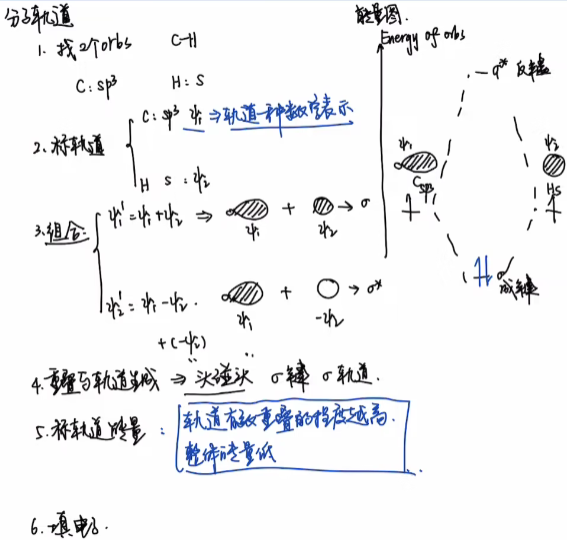 分子轨道
1. 找2个orbs C-H
C: sp³ H: S
2. 标轨道
C: sp³ ψ₁ ⇒ 轨道一种数学表示
H S = ψ₂
3. 组合:
ψ₁' = ψ₁ + ψ₂ ⇒ + → σ
ψ₁ ψ₂
ψ₂' = ψ₁ - ψ₂. + → σ*
+(-ψ₂)
ψ₁ -ψ₂
4. 重叠与轨道生成 ⇒ 头碰头 σ键 σ轨道.
5. 标轨道能量: 轨道有效重叠的程度越高.
整体能量低
6. 填电子.
能量图.
Energy of orbs
σ* 反键
ψ₁ ψ₂
Csp³ HS
σ
成键